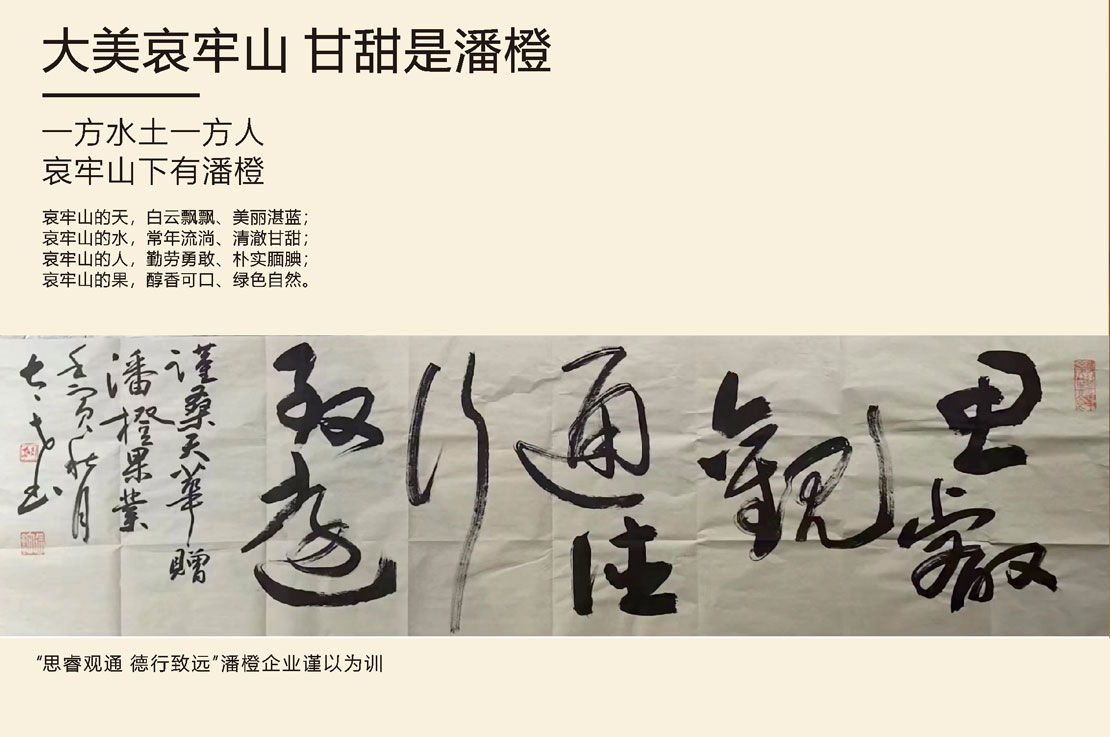 大美哀牢山 甘甜是潘橙
一方水土一方人
哀牢山下有潘橙
哀牢山的天，白云飘飘、美丽湛蓝；
哀牢山的水，常年流淌、清澈甘甜；
哀牢山的人，勤劳勇敢、朴实腼腆；
哀牢山的果，醇香可口、绿色自然。
思叡
觀
通德
行
致遠
谨桑天華贈
潘橙果業
壬寅秋月
“思睿观通 德行致远”潘橙企业谨以为训